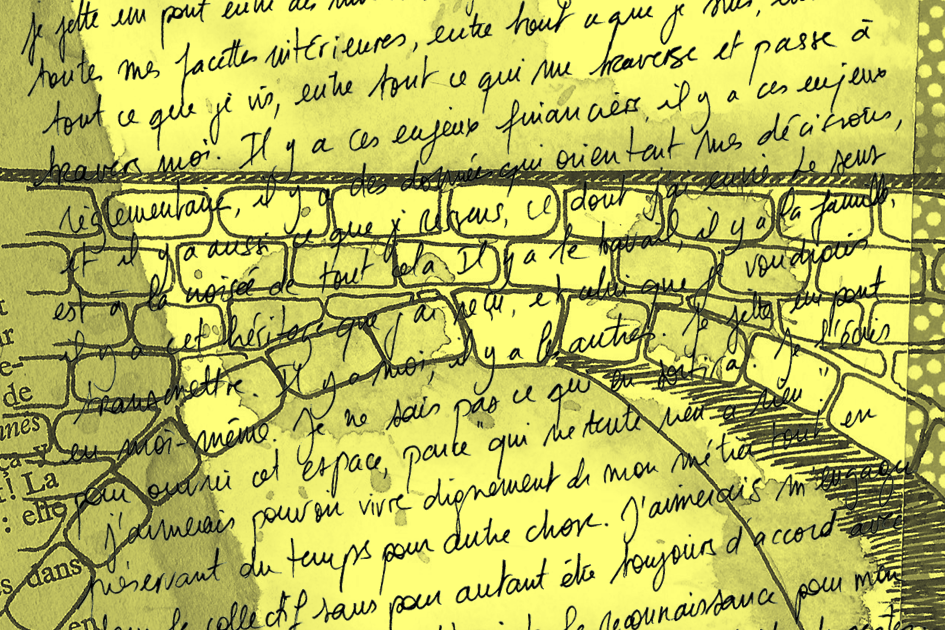 je jette un pont entre des
toutes mes facettes intérieures, entre tout ce que je suis,
tout ce que je vis, entre tout ce qui me traverse et passe à
travers moi. Il y a ces enjeux financiers, il y a ces enjeux
réglementaires, il y a des données qui orientent mes décisions,
et il y a aussi ce que je ressens, ce dont j'ai envie. Le sens
est à la croisée de tout cela. Il y a le travail, il y a la famille,
il y a cet héritage que j'ai reçu, et celui que je voudrais
transmettre. Il y a moi, il y a les autres. Je jette un pont
en moi-même. Je ne sais pas ce qui en sortira. Je l'écris
pour ouvrir cet espace, parce "qui ne tente rien a rien".
J'aimerais pouvoir vivre dignement de mon métier tout en
préservant du temps pour autre chose. J'aimerais m'engager
dans le collectif sans pour autant être toujours d'accord avec
la reconnaissance pour mon
r
e-
de
nnes
ça-y
! La
: elle
s dans
en